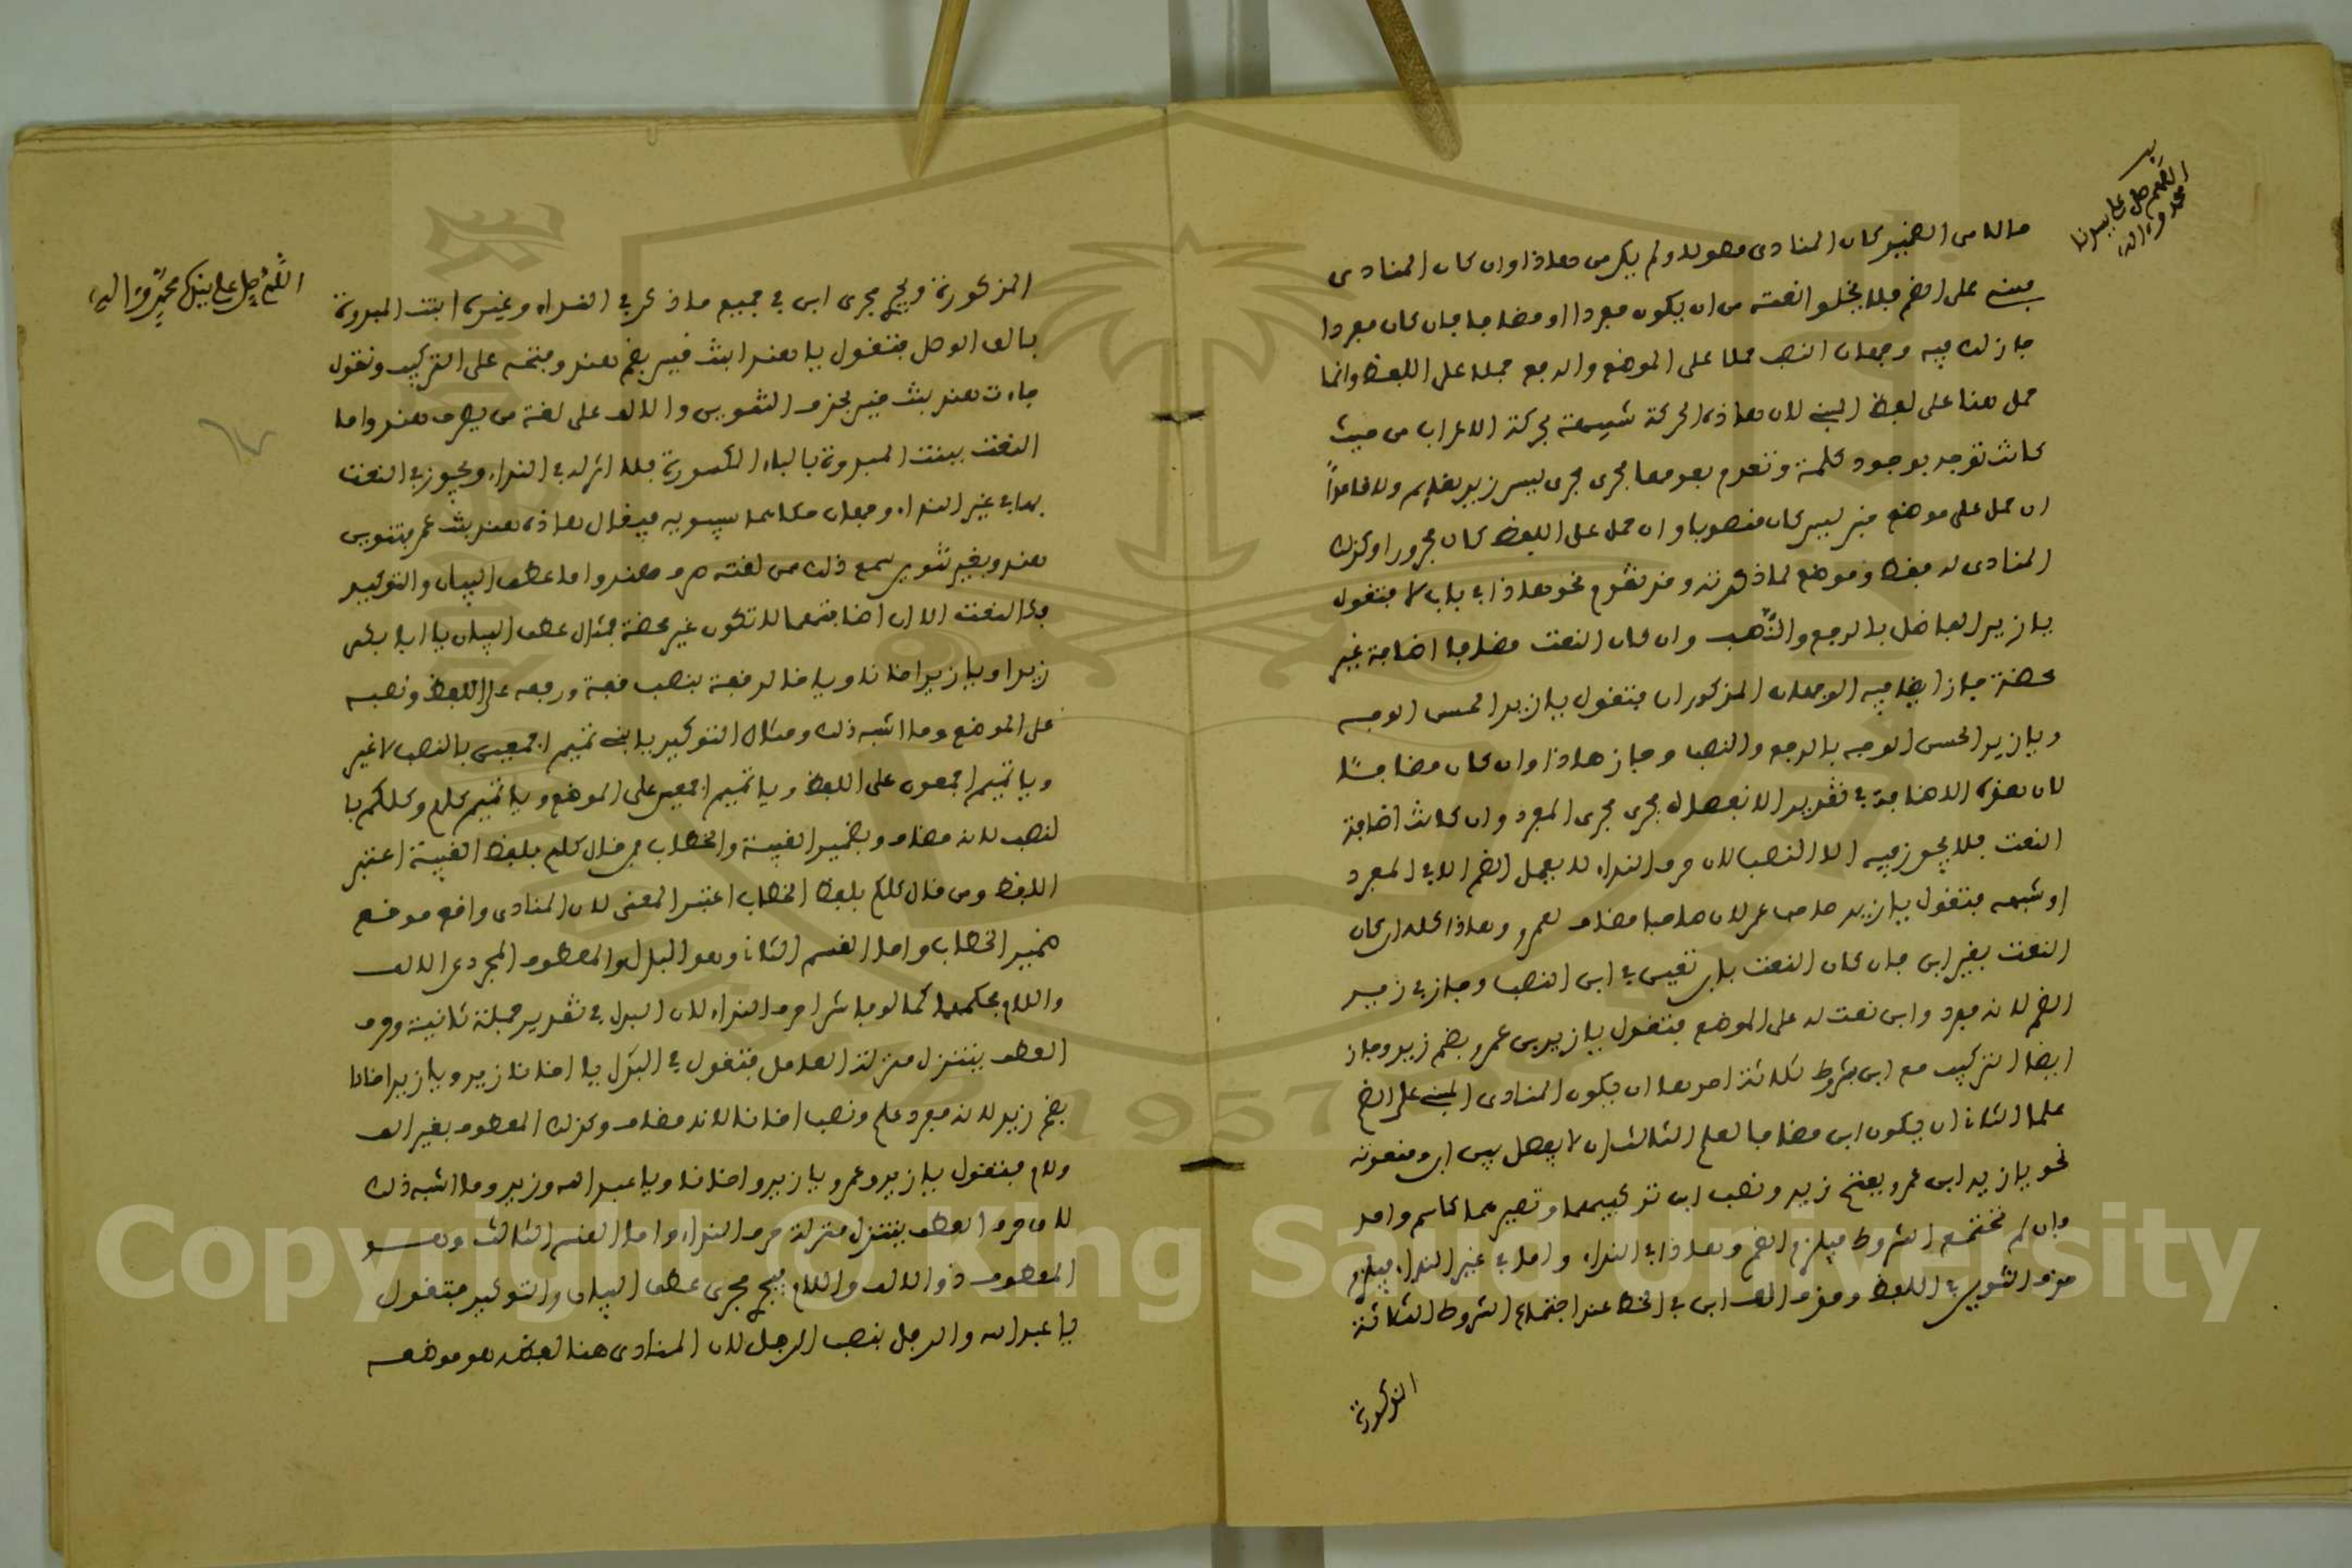 اللهم صل على سيدنا
محمد وءاله
ماله من الضمير كان المنادى موله ولم يكن هاذا وان كان المنادى
مبني على الضم فلا يخلو انعته من ان يكون مفردا او مضافا فان كان مفردا
جاز لك فيه وجهان النصب حملا على الموضع والرفع حملا على اللفظ وانما
حمل هنا على لفظ المبني لان هاذه الحركة شبيهة بحركة الاعراب من حيث
كانت توجد بوجود كلمة وتعدم بعدمها فجرى مجرى ليس زيد بقايم ولا قاعدا
ان حمل على موضع خبر ليس كان منصوبا وان حمل على اللفظ كان مجرورا وكذلك
المنادى له لفظ وموضع لما ذكرته وقد تقدم نحو هاذا في باب لا فتقول
يا زيد الفاضل بالرفع والنصب وان كان النعت مضافا اضافة غير
محضة جاز ايضا فيه الوجهان المذكوران فتقول يا زيد الحسن الوجه
ويا زيد الحسن الوجه بالرفع والنصب وجاز هاذا وان كان مضافا
لان هذه الاضافة في تقدير الانفصال فجرى مجرى المفرد وان كانت اضافة
النعت فلا يجوز فيه الا النصب لان حرف النداء لا يعمل الضم الا في المفرد
او شبهه فتقول يا زيد صاحب عمر لان صاحبا مضاف لعمرو وهاذا كله ان كان
النعت بغير ابن فان كان النعت بابن تعين في ابن النصب وجاز في زيد
الضم لانه مفرد وابن نعت له على الموضع فتقول يا زيد بن عمرو بضم زيد وجاز
ايضا التركيب مع ابن بشروط ثلاثة احدها ان يكون المنادى المبني على الضم
علما الثاني ان يكون ابن مضافا لعلم الثالث ان لا يفصل بين ابن ومنعوته
نحو يا زيد ابن عمرو بفتح زيد ونصب ابن تركيبهما وتصيرهما كاسم واحد
وان لم تجتمع الشروط فيلزم الضم وهاذا في النداء واما في غير النداء فيلزم
حذف التنوين في اللفظ وحذف الف ابن في الخط عند اجتماع الشروط الثلاثة
المذكورة
اللهم صل على نبيك محمد وءاله
المذكورة ويجري مجرى ابن في جميع ما ذكر في النداء وغيره ابنت المبدوة
بالف الوصل فتقول يا هند ابنت قيس بضم هند وفتحه على التركيب وتقول
جاءت هند بنت قيس بحذف التنوين والالف على لغة من يصرف هند واما
النعت ببنت المبدوة بالباء المكسورة فلا اثر له في النداء ويجوز في النعت
بها في غير النداء وجهان حكاهما سيبويه فيقال هاذه هند بنت عمر بتنوين
هند وبغير تنوين سمع ذلك من لغته صرف هند واما عطف البيان والتوكيد
فكالنعت الا ان اضافتهما لا تكون غير محضة فمثال عطف البيان يا ابا بكر
زيدا ويا زيد اخانا ويا خالد قفة بنصب قفة ورفعه على اللفظ ونصبه
على الموضع وما اشبه ذلك ومثال التوكيد يا بني تميم اجمعين بالنصب لا غير
ويا تميم اجمعون على اللفظ ويا تميم اجمعين على الموضع ويا تميم كلهم وكلكم با
لنصب لانه مضاف وبضمير الغيبة والخطاب فمن قال كلهم بلفظ الغيبة اعتبر
اللفظ ومن قال كلكم بلفظ الخطاب اعتبر المعنى لان المنادى واقع موقع
ضمير الخطاب واما القسم الثاني وهو البدل والمعطوف المجرد من الالف
واللام فحكمهما كما لو باشرا حرف النداء لان البدل في تقدير جملة ثانية وحرف
العطف يتنزل منزلة العامل فتقول في البدل يا اخانا زيد ويا زيد اخانا
بضم زيد لانه مفرد علم ونصب اخانا لانه مضاف وكذلك المعطوف بغير الف
ولام فتقول يا زيد وعمرو يا زيد واخانا ويا عبد الله وزيد وما اشبه ذلك
لان حرف العطف يتنزل منزلة حرف النداء واما القسم الثالث وهو
المعطوف ذو الالف واللام فيجري مجرى عطف البيان والتوكيد فتقول
يا عبد الله والرجل بنصب الرجل لان المنادى هنا لفظه هو موضعه